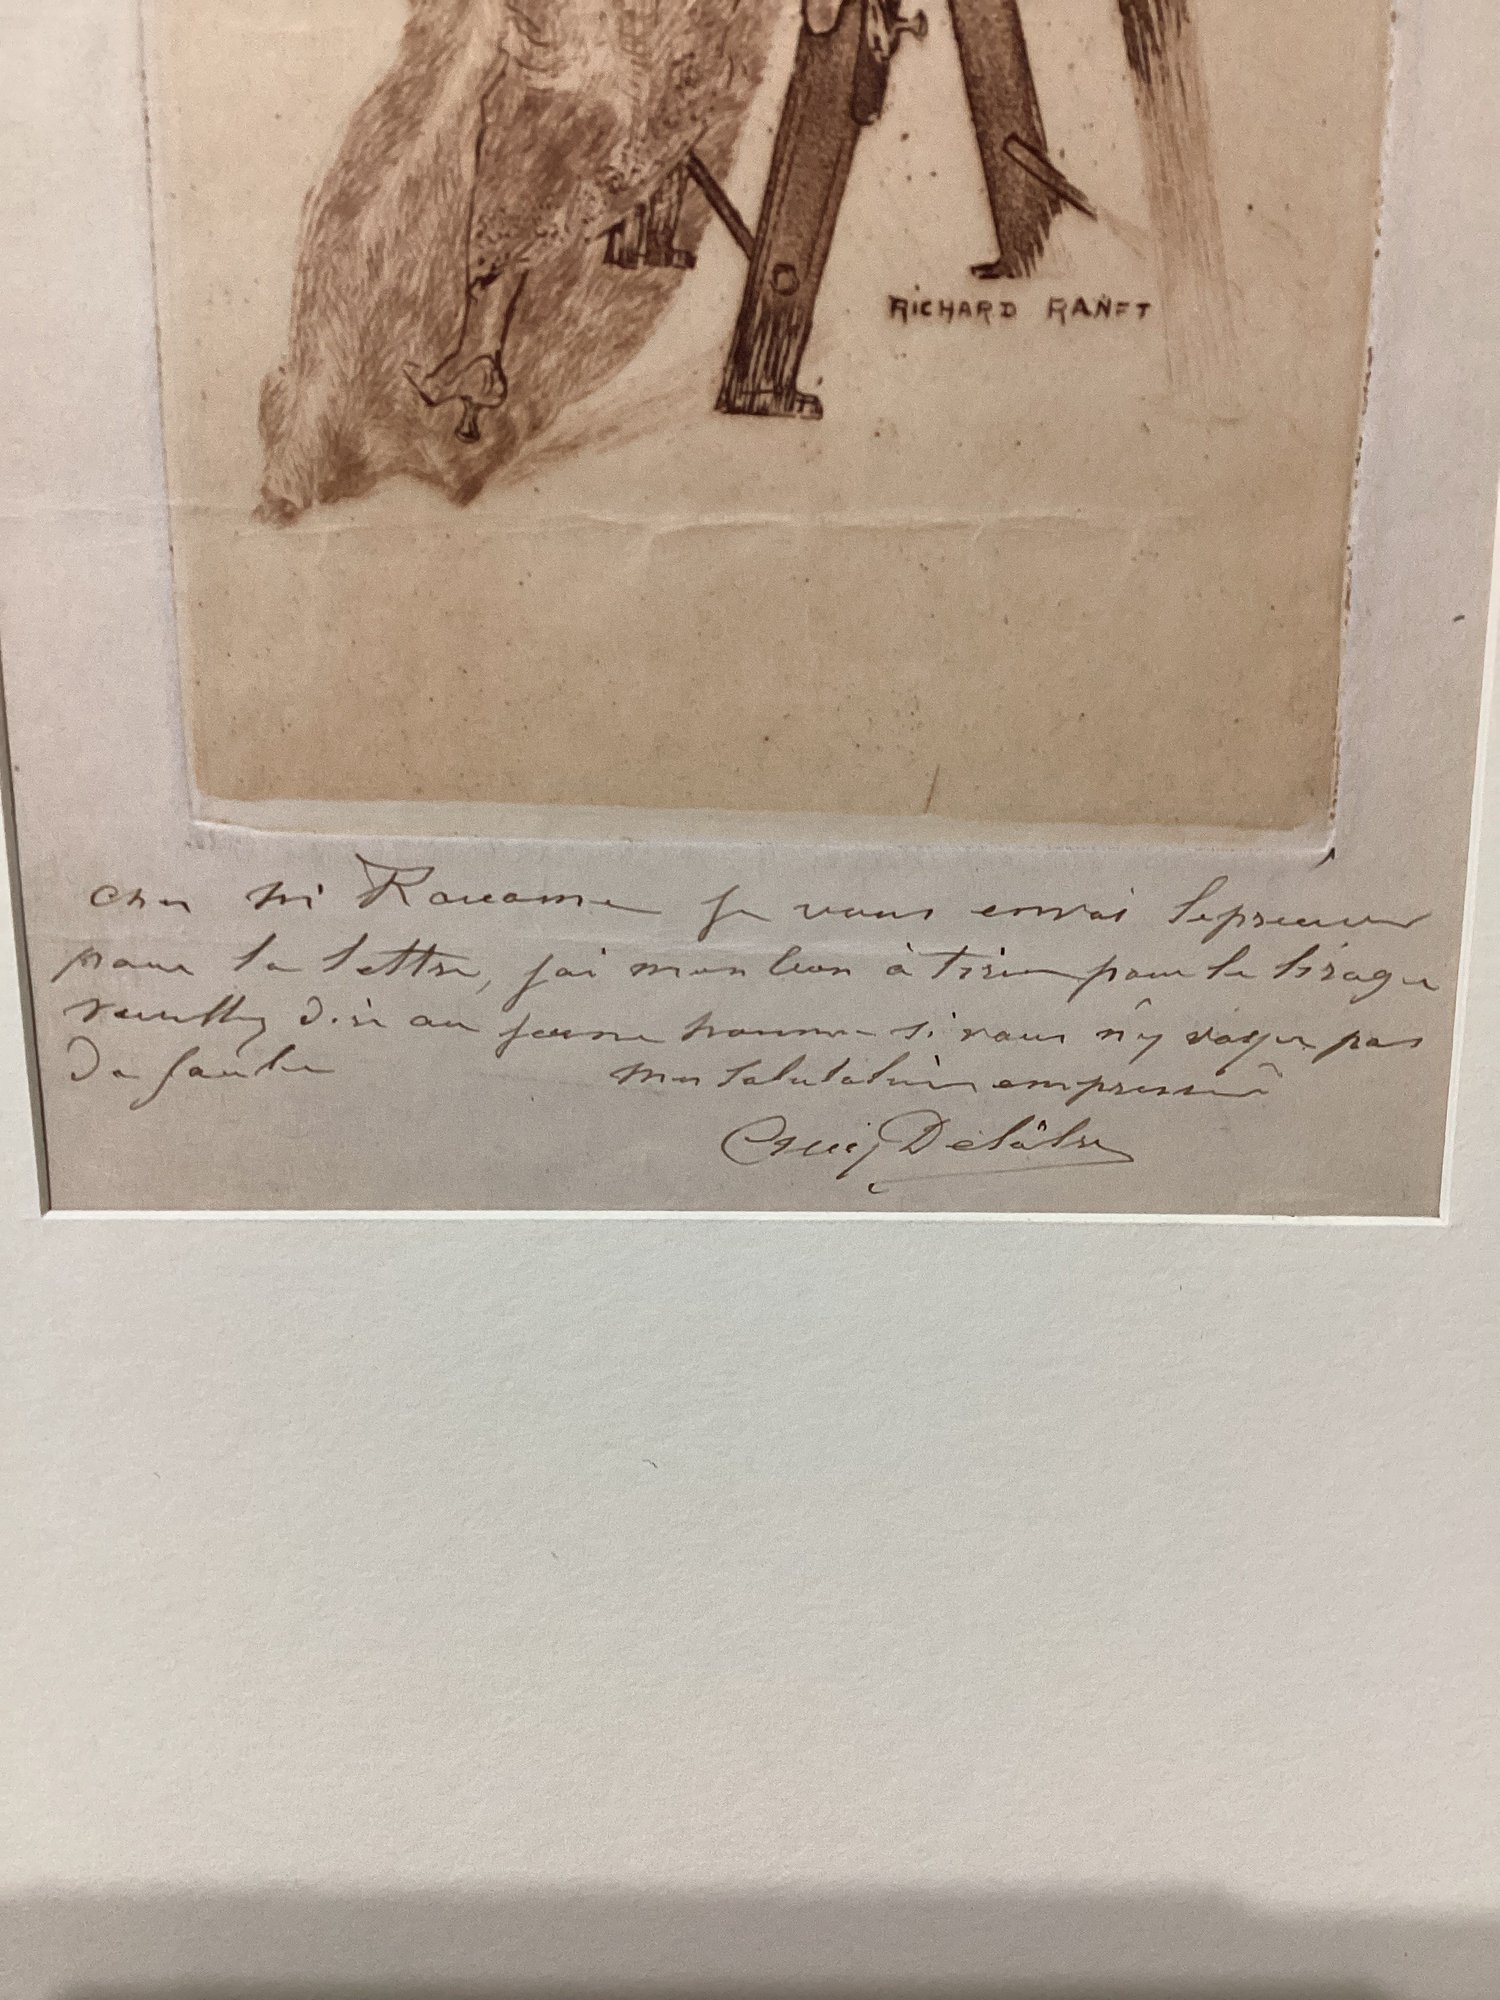 RICHARD RANFT
cher mi Roueame je vous envoi lepreuve
pour la lettre, jai mon bon à tirer pour le tirage
veuillez dire au jeune homme si vous n'y voyez pas
De faute mes salutation empressé
Eug Delâtre